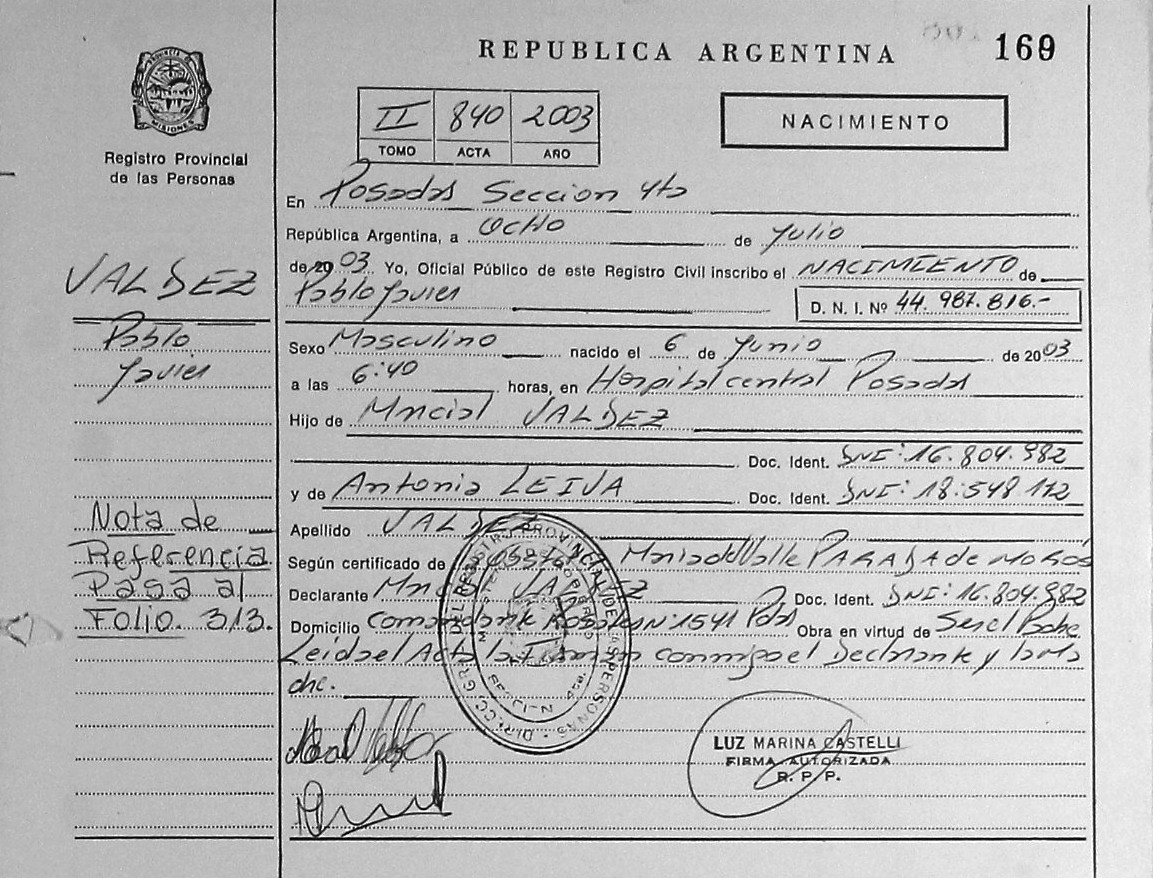 REPUBLICA ARGENTINA
169
PROVINCIA DE MISIONES
Registro Provincial
de las Personas
II 840 2003
TOMO ACTA AÑO
NACIMIENTO
En Posadas Seccion 4ta
República Argentina, a OCHO de Julio
de 2003. Yo, Oficial Público de este Registro Civil inscribo el NACIMIENTO de
Pablo Javier
D. N. I. Nº 44.987.816.-
VALDEZ
Pablo
Javier
Sexo Masculino nacido el 6 de Junio de 2003
a las 6:40 horas, en Hospital central Posadas
Hijo de Marcial VALDEZ
Doc. Ident. DNI: 16.804.982
y de Antonia LEIVA Doc. Ident. DNI: 18.548.172
Apellido VALDEZ
Según certificado de Maria del Valle PARADA de MOROS
Declarante VALDEZ Doc. Ident. DNI: 16.804.982
Domicilio Comandante Rosales Nº 1541 Pdas Obra en virtud de Ser el Padre
Leida el Acta la Firman conmigo el Declarante y la Ma
dre.
Nota de
Referencia
Pasa al
Folio. 313.
LUZ MARINA CASTELLI
FIRMA AUTORIZADA
R. P. P.